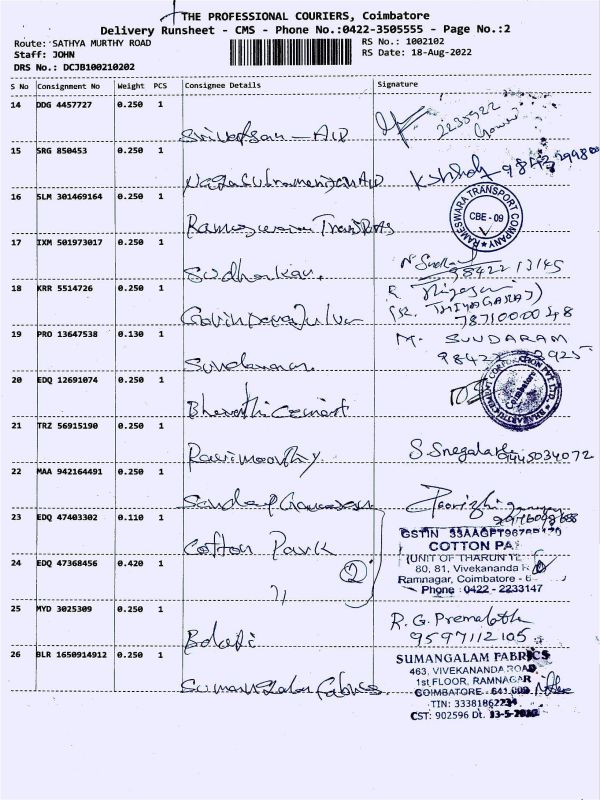 THE PROFESSIONAL COURIERS, Coimbatore
Delivery Runsheet - CMS - Phone No.:0422-3505555 - Page No.:2
Route: SATHYA MURTHY ROAD
Staff: JOHN
DRS No.: DCJB100210202
RS No.: 1002102
RS Date: 18-Aug-2022
S No Consignment No Weight PCS Consignee Details Signature
14 DDG 4457727 0.250 1
2235922
15 SRG 850453 0.250 1
16 SLM 301469164 0.250 1
Rameswara Transports
RAMESWARA TRANSPORT COMPANY
CBE - 09
17 IXM 501973017 0.250 1
Sudharkar.
98422 13145
18 KRR 5514726 0.250 1
(R. THIYAGARAJ)
19 PRO 13647538 0.130 1
Sundaram.
M. SUNDARAM
20 EDQ 12691074 0.250 1
Bharathi Cement
21 TRZ 56915190 0.250 1
Ravimoorthy.
22 MAA 942164491 0.250 1
23 EDQ 47403302 0.110 1
Cotton Park
COTTON PA
(UNIT OF THARUN TE
80, 81, Vivekananda R
Ramnagar, Coimbatore - 6
Phone : 0422 - 2233147
24 EDQ 47368456 0.420 1
②
25 MYD 3025309 0.250 1
Balaji
R. G. Premalatha
9597112105
26 BLR 1650914912 0.250 1
Sumangalam Fabrics.
SUMANGALAM FABRICS
463, VIVEKANANDA ROAD
1st FLOOR, RAMNAGAR
COIMBATORE - 641 009
TIN: 33381862234
CST: 902596 Dt.